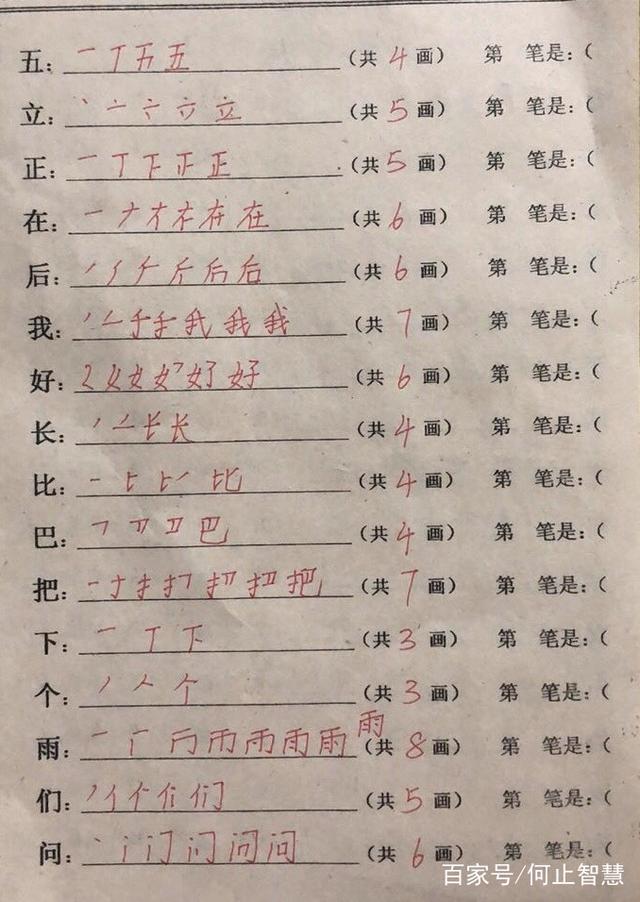 五：一丅五五（共4画） 第 笔是：（
立：丶亠亠立（共5画） 第 笔是：（
正：一丅下正正（共5画） 第 笔是：（
在：一ナ才在（共6画） 第 笔是：（
后：丿厂后（共6画） 第 笔是：（
我：丿二手我我我（共7画） 第 笔是：（
好：女女好好（共6画） 第 笔是：（
长：丿长长（共4画） 第 笔是：（
比：一比（共4画） 第 笔是：（
巴：巴（共4画） 第 笔是：（
把：一十扌把（共7画） 第 笔是：（
下：一丅下（共3画） 第 笔是：（
个：丿人个（共3画） 第 笔是：（
雨：一雨雨雨雨（共8画） 第 笔是：（
们：丿亻们（共5画） 第 笔是：（
问：丶门问问（共6画） 第 笔是：（
百家号/何止智慧